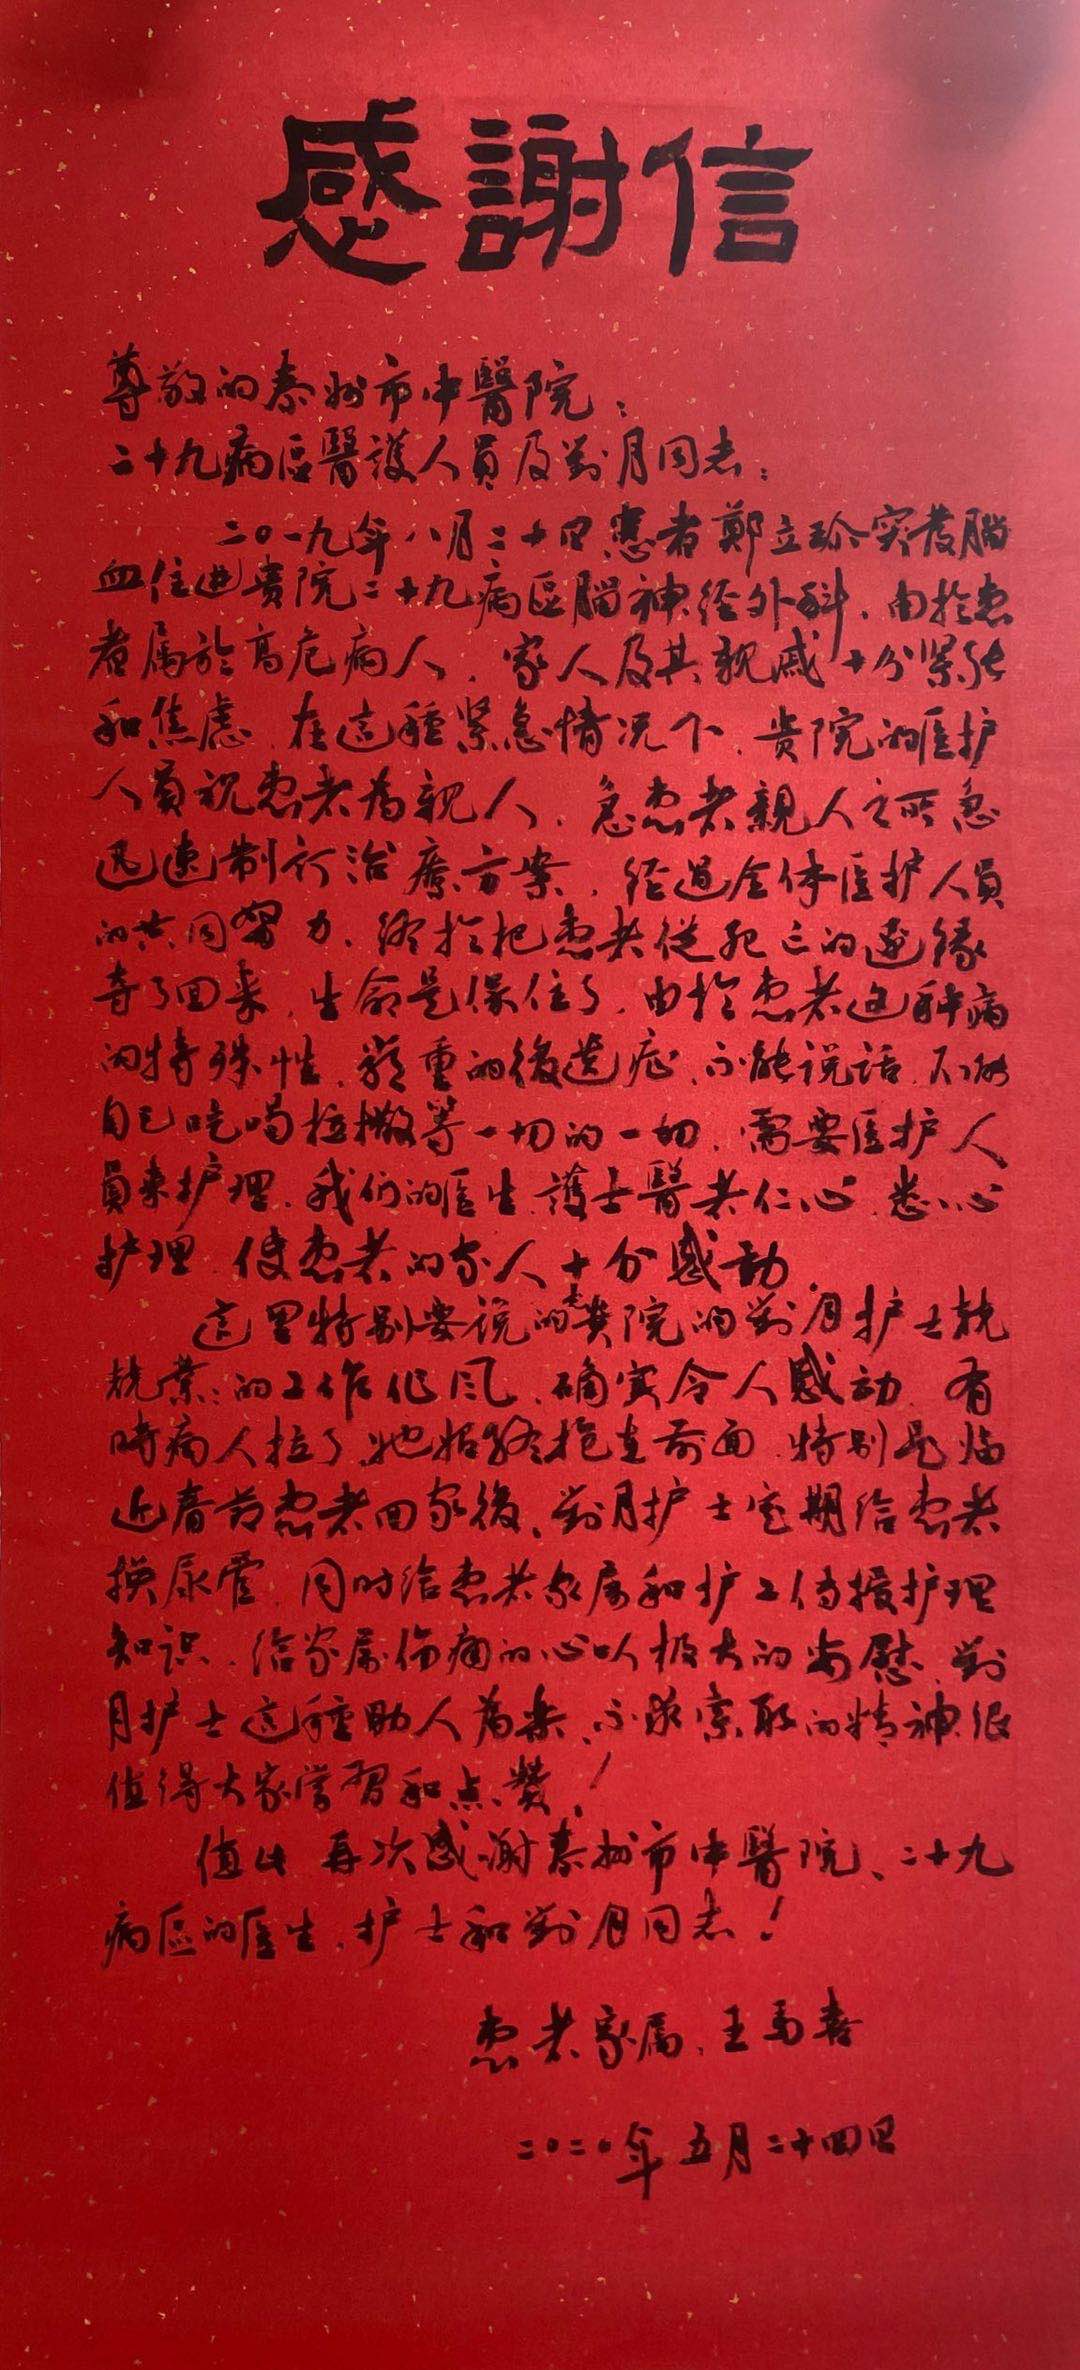 感謝信
尊敬的泰州市中醫院：
二十九病區醫護人員及對月同志：
二〇一九年八月二十四患者鄭立珍突發腦
血住進貴院二十九病區腦神經外科，由於患
者属於高危病人，家人及其親戚十分紧張
和焦虑，在這種緊急情况下，贵院的医护
人員視患者为親人，急患者親人之所急
迅速制訂治療方案，经過全体医护人員
的共同努力，终於把患者從死亡的邊缘
夺了回来，生命是保住了，由於患者这种病
的特殊性，嚴重的後遗症，不能说话，不能
自己吃喝拉撒等一切的一切，需要医护人
員来护理，我们的医生護士醫者仁心，悉心
护理，使患者的家人十分感動。
這里特别要说的是贵院的對月护士兢
兢業業的工作作风，确实令人感动，有
時病人拉了，她始终抢在前面，特别是临
近春节患者回家後，對月护士定期给患者
换尿管，同时给患者家属和护工传授护理
知识，给家属伤痛的心以极大的安慰，對
月护士這種助人為楽，不求索取的精神很
值得大家学習和点赞！
值此再次感谢泰州市中醫院、二十九
病区的医生，护士和對月同志！
患者家属，王馬喜
二〇二〇年五月二十四日